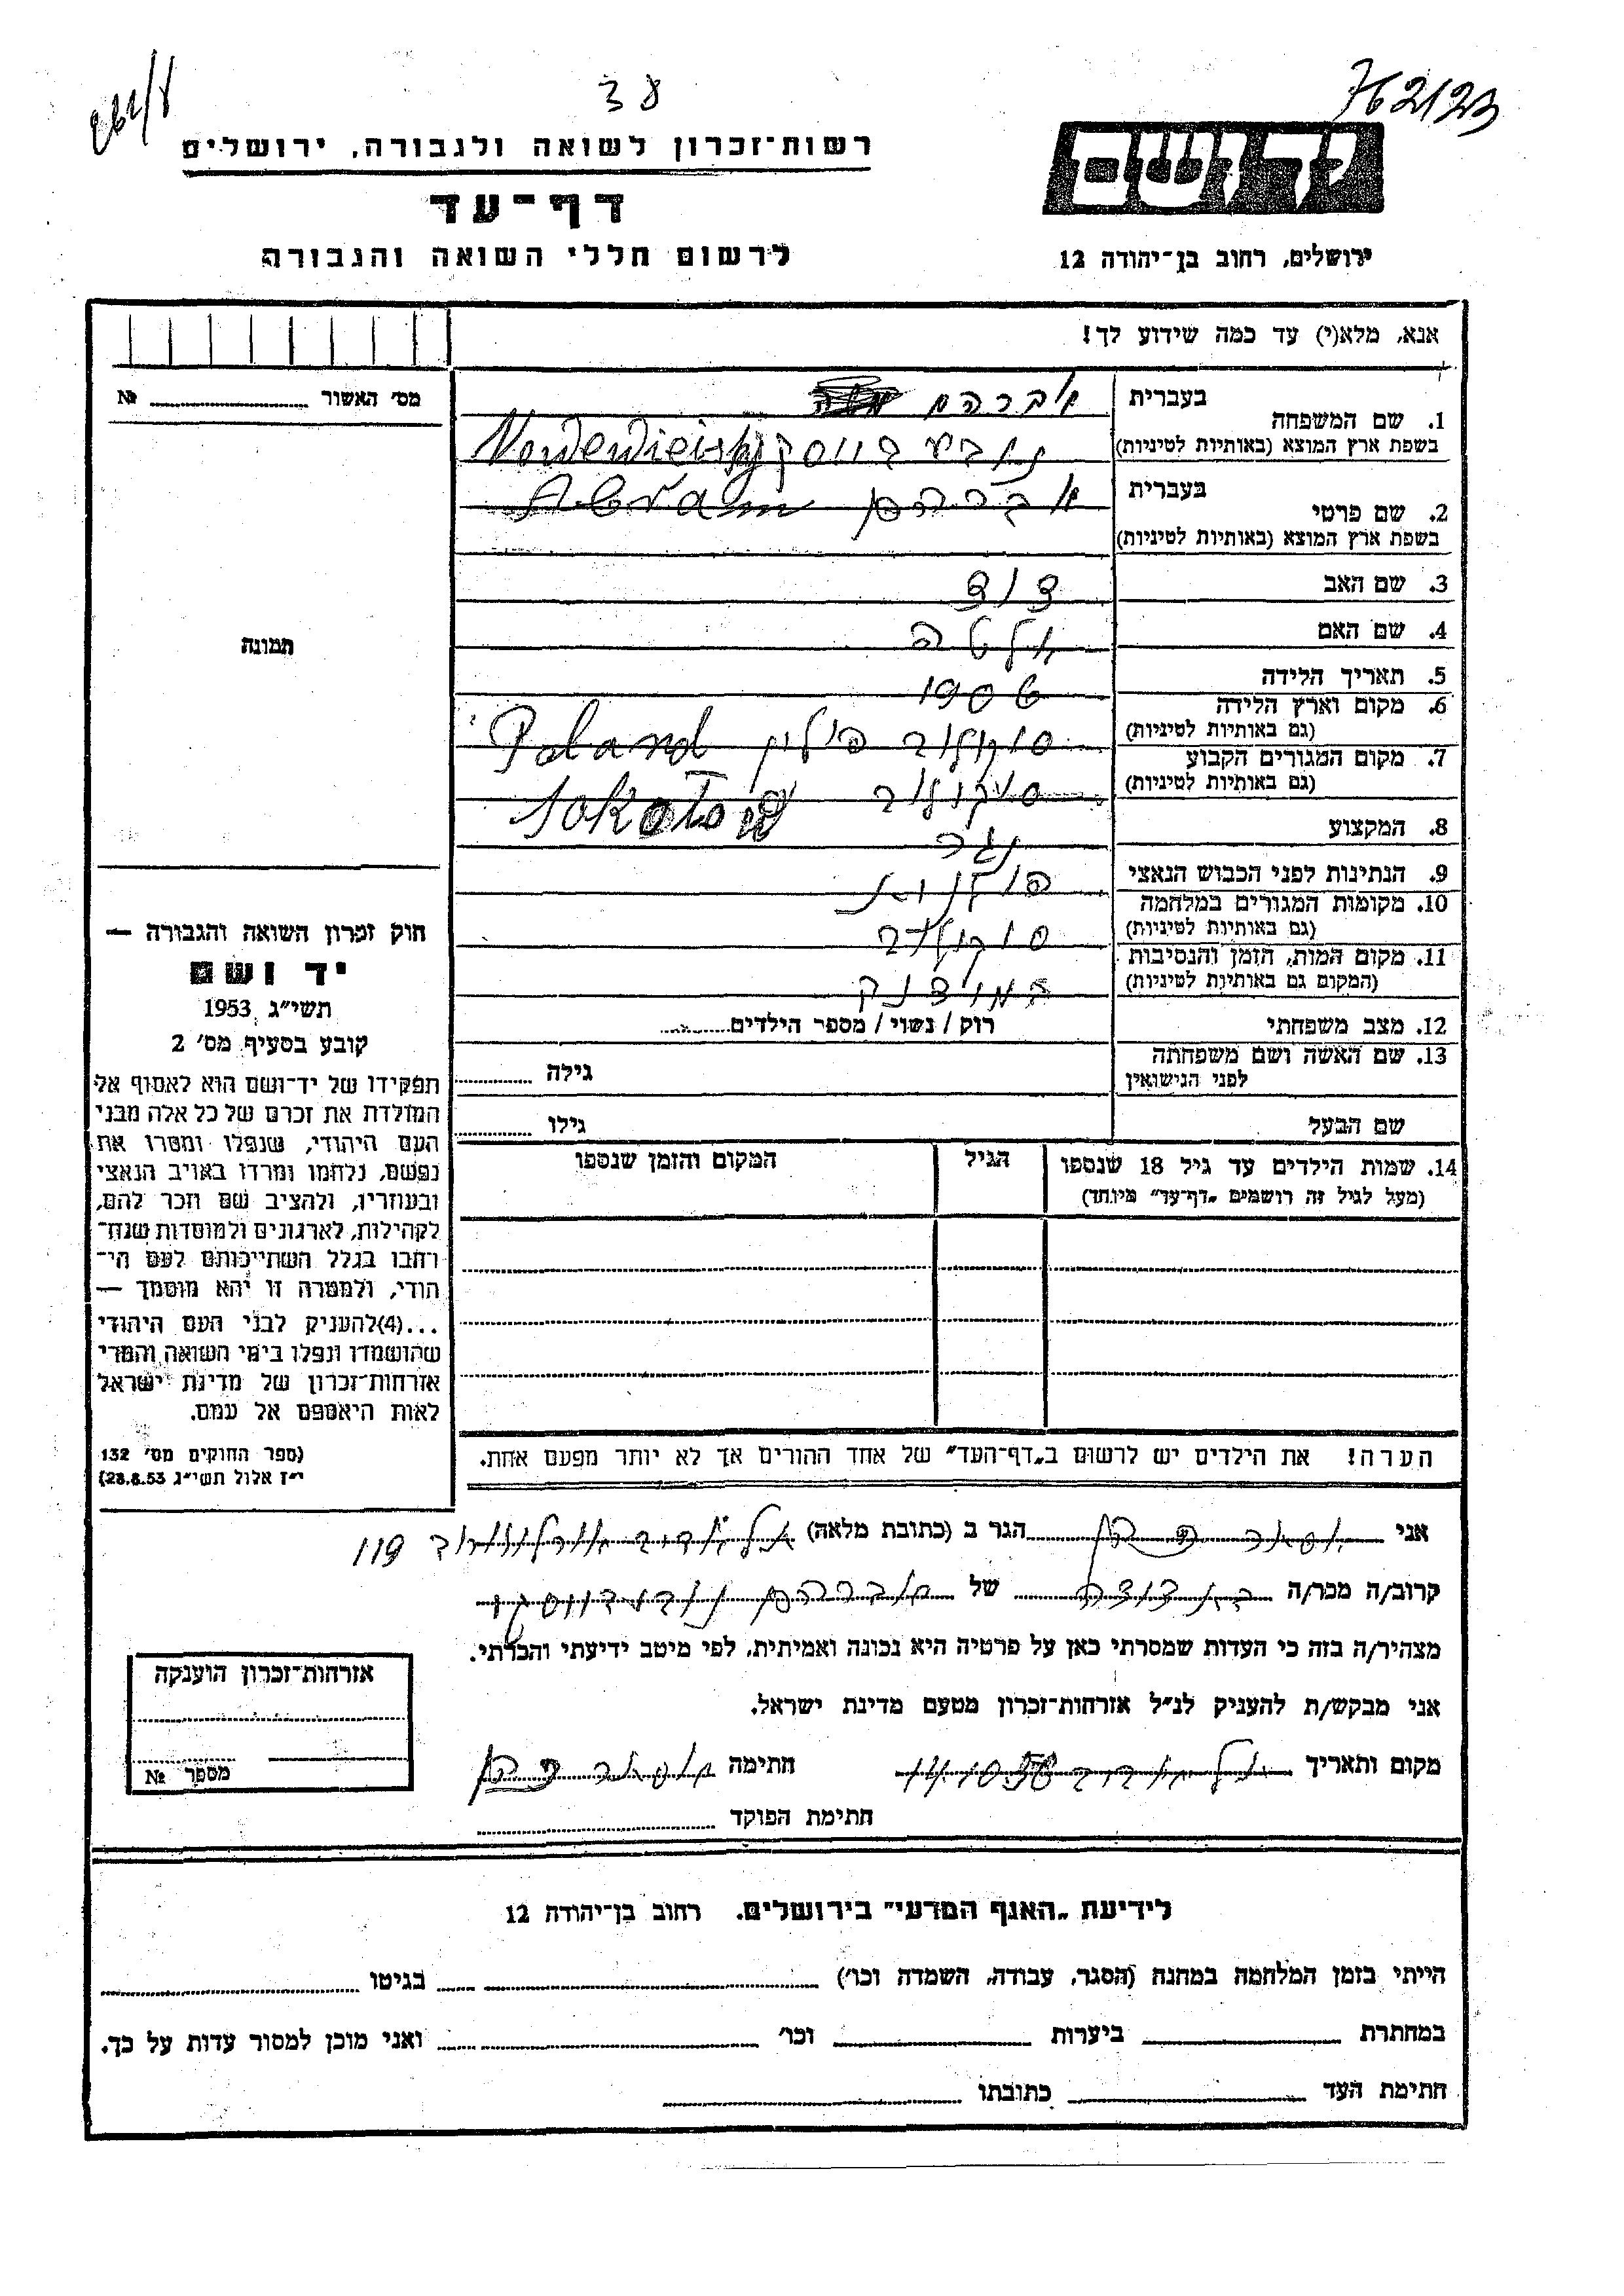 38
762123
רשות־זכרון לשואה ולגבורה, ירושלים
דף־עד
לרשום חללי השואה והגבורה
יד ושם
ירושלים, רחוב בן־יהודה 12
אנא, מלא(י) עד כמה שידוע לך!
מס׳ האשור №
1. שם המשפחה בעברית אברהם
בשפת ארץ המוצא (באותיות לטיניות)
2. שם פרטי בעברית אברהם Abram
בשפת ארץ המוצא (באותיות לטיניות)
3. שם האב דוד
4. שם האם
5. תאריך הלידה 1906
6. מקום וארץ הלידה
(גם באותיות לטיניות) סוקולוב פולין Poland
7. מקום המגורים הקבוע
(גם באותיות לטיניות) סוקולוב Sokołow
8. המקצוע נגר
9. הנתינות לפני הכבוש הנאצי פולנית
10. מקומות המגורים במלחמה
(גם באותיות לטיניות) סוקולוב
11. מקום המות, הזמן והנסיבות
(המקום גם באותיות לטיניות)
12. מצב משפחתי רוק / נשוי / מספר הילדים
13. שם האשה ושם משפחתה
לפני הנישואין גילה
שם הבעל גילו
14. שמות הילדים עד גיל 18 שנספו הגיל המקום והזמן שנספו
(מעל לגיל זה רושמים „דף־עד״ מיוחד)
הערה! את הילדים יש לרשום ב„דף־העד״ של אחד ההורים אך לא יותר מפעם אחת.
תמונה
חוק זכרון השואה והגבורה —
יד ושם
תשי״ג 1953
קובע בסעיף מס׳ 2
תפקידו של יד־ושם הוא לאסוף אל
המולדת את זכרם של כל אלה מבני
העם היהודי, שנפלו ומסרו את
נפשם, נלחמו ומרדו באויב הנאצי
ובעוזריו, ולהציב שם וזכר להם,
לקהילות, לארגונים ולמוסדות שנח־
רבו בגלל השתייכותם לעם הי־
הודי, ולמטרה זו יהא מוסמך —
...(4) להעניק לבני העם היהודי
שהושמדו ונפלו בימי השואה והמרי
אזרחות־זכרון של מדינת ישראל
לאות היאספם אל עמם.
(ספר החוקים מס׳ 132
י״ז אלול תשי״ג 28.8.53)
אני הגר ב (כתובת מלאה) תל אביב ארלוזורוב 119
קרוב/ה מכר/ה של אברהם
מצהיר/ה בזה כי העדות שמסרתי כאן על פרטיה היא נכונה ואמיתית, לפי מיטב ידיעתי והכרתי.
אני מבקש/ת להעניק לנ״ל אזרחות־זכרון מטעם מדינת ישראל.
מקום ותאריך תל אביב חתימה
חתימת הפוקד
אזרחות־זכרון הוענקה
מספר №
לידיעת „האגף המדעי״ בירושלים. רחוב בן־יהודה 12
הייתי בזמן המלחמה במחנה (הסגר, עבודה, השמדה וכו׳) בגיטו
במחתרת ביערות וכו׳ ואני מוכן למסור עדות על כך.
חתימת העד כתובתו